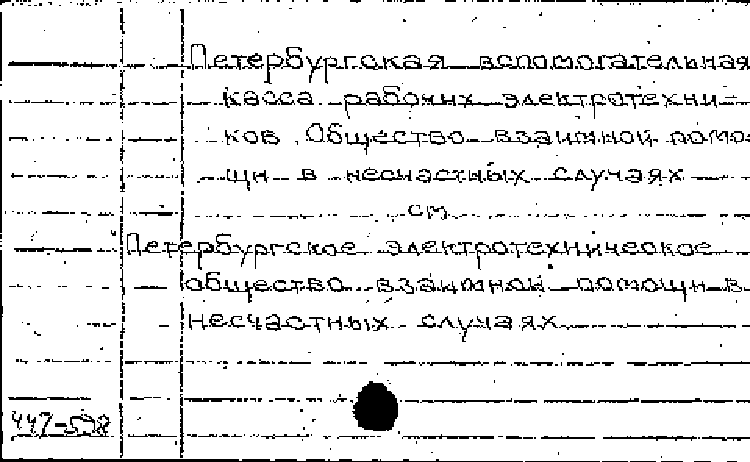 Петербургская вспомогательная
касса рабочих электротехни-
ков. Общество взаимной помо-
щи в несчастных случаях
см.
Петербургское электротехническое
общество взаимной помощи в
несчастных случаях
447-508